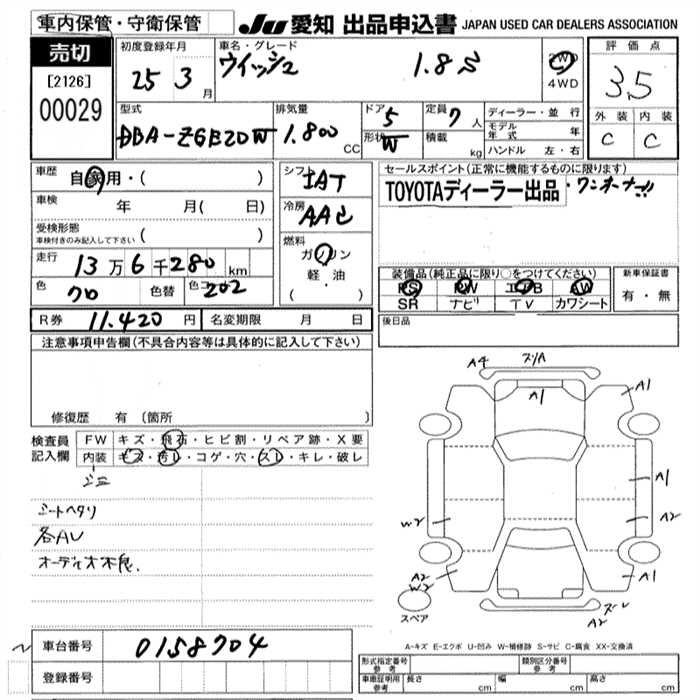 車内保管・守衛保管
JU 愛知 出品申込書 JAPAN USED CAR DEALERS ASSOCIATION
売切
[2126]
00029
初度登録年月
25 3月
車名・グレード
ウイッシュ 1.8S
2WD
4WD
評価点
3.5
外装 内装
C C
型式
DBA-ZGE20W
排気量
1.800 CC
ドア 5
形状 W
定員 7人
積載 kg
ディーラー・並行
モデル年式 年
ハンドル 左・右
車歴 自家用・( )
車検 年 月( 日)
受検形態
車検付きのみ記入して下さい ( )
走行 13万6千280km
色 クロ 色替 色コード 202
シフト IAT
冷房 AAC
燃料
ガソリン
軽・油
( )
セールスポイント(正常に機能するものに限ります)
TOYOTAディーラー出品・ワンオーナー!!
装備品(純正品に限り○をつけてください)
PS PW エアB AW
SR ナビ TV カワシート
新車保証書
有・無
R券 11.420円 名変期限 月 日
後日品
注意事項申告欄(不具合内容等は具体的に記入して下さい)
修復歴 有 (箇所 )
検査員記入欄
FW キズ・飛石・ヒビ割・リペア跡・X要
内装 キズ・汚レ・コゲ・穴・スレ・キレ・破レ
シミ
シートヘタリ
各AU
オーディオ不良.
A4 スリA
A1 A1
A1
W2 A2
A2
W2 A1
スレ
スペア
A-キズ E-エクボ U-凹み W-補修跡 S-サビ C-腐食 XX-交換済
車台番号 0158704
登録番号
型式指定番号参考 類別区分番号参考
車庫証明用参考 長さ cm 幅 cm 高さ cm